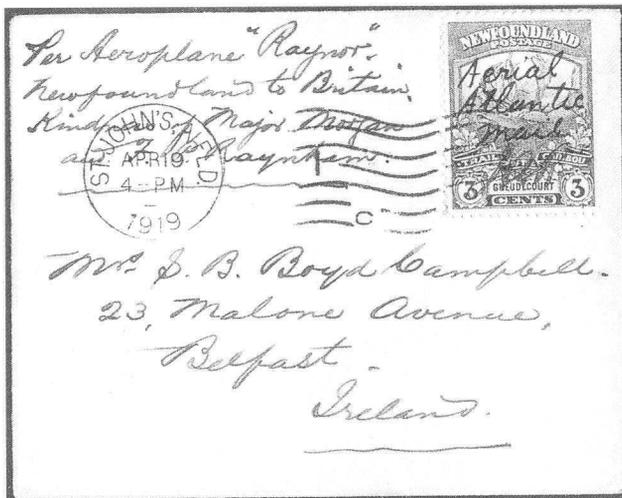 Per Aeroplane "Raynor".
Newfoundland to Britain.
Kindness of Major Morgan
and of Raynham.
ST. JOHN'S, NFLD.
APR 19
4-PM
1919
C
NEWFOUNDLAND
POSTAGE
Aerial
Atlantic
Mail
TRAIL OF THE CARIBOU
GUEUDECOURT
3 CENTS 3
Mrs S. B. Boyd Campbell.
23, Malone Avenue,
Belfast.
Ireland.